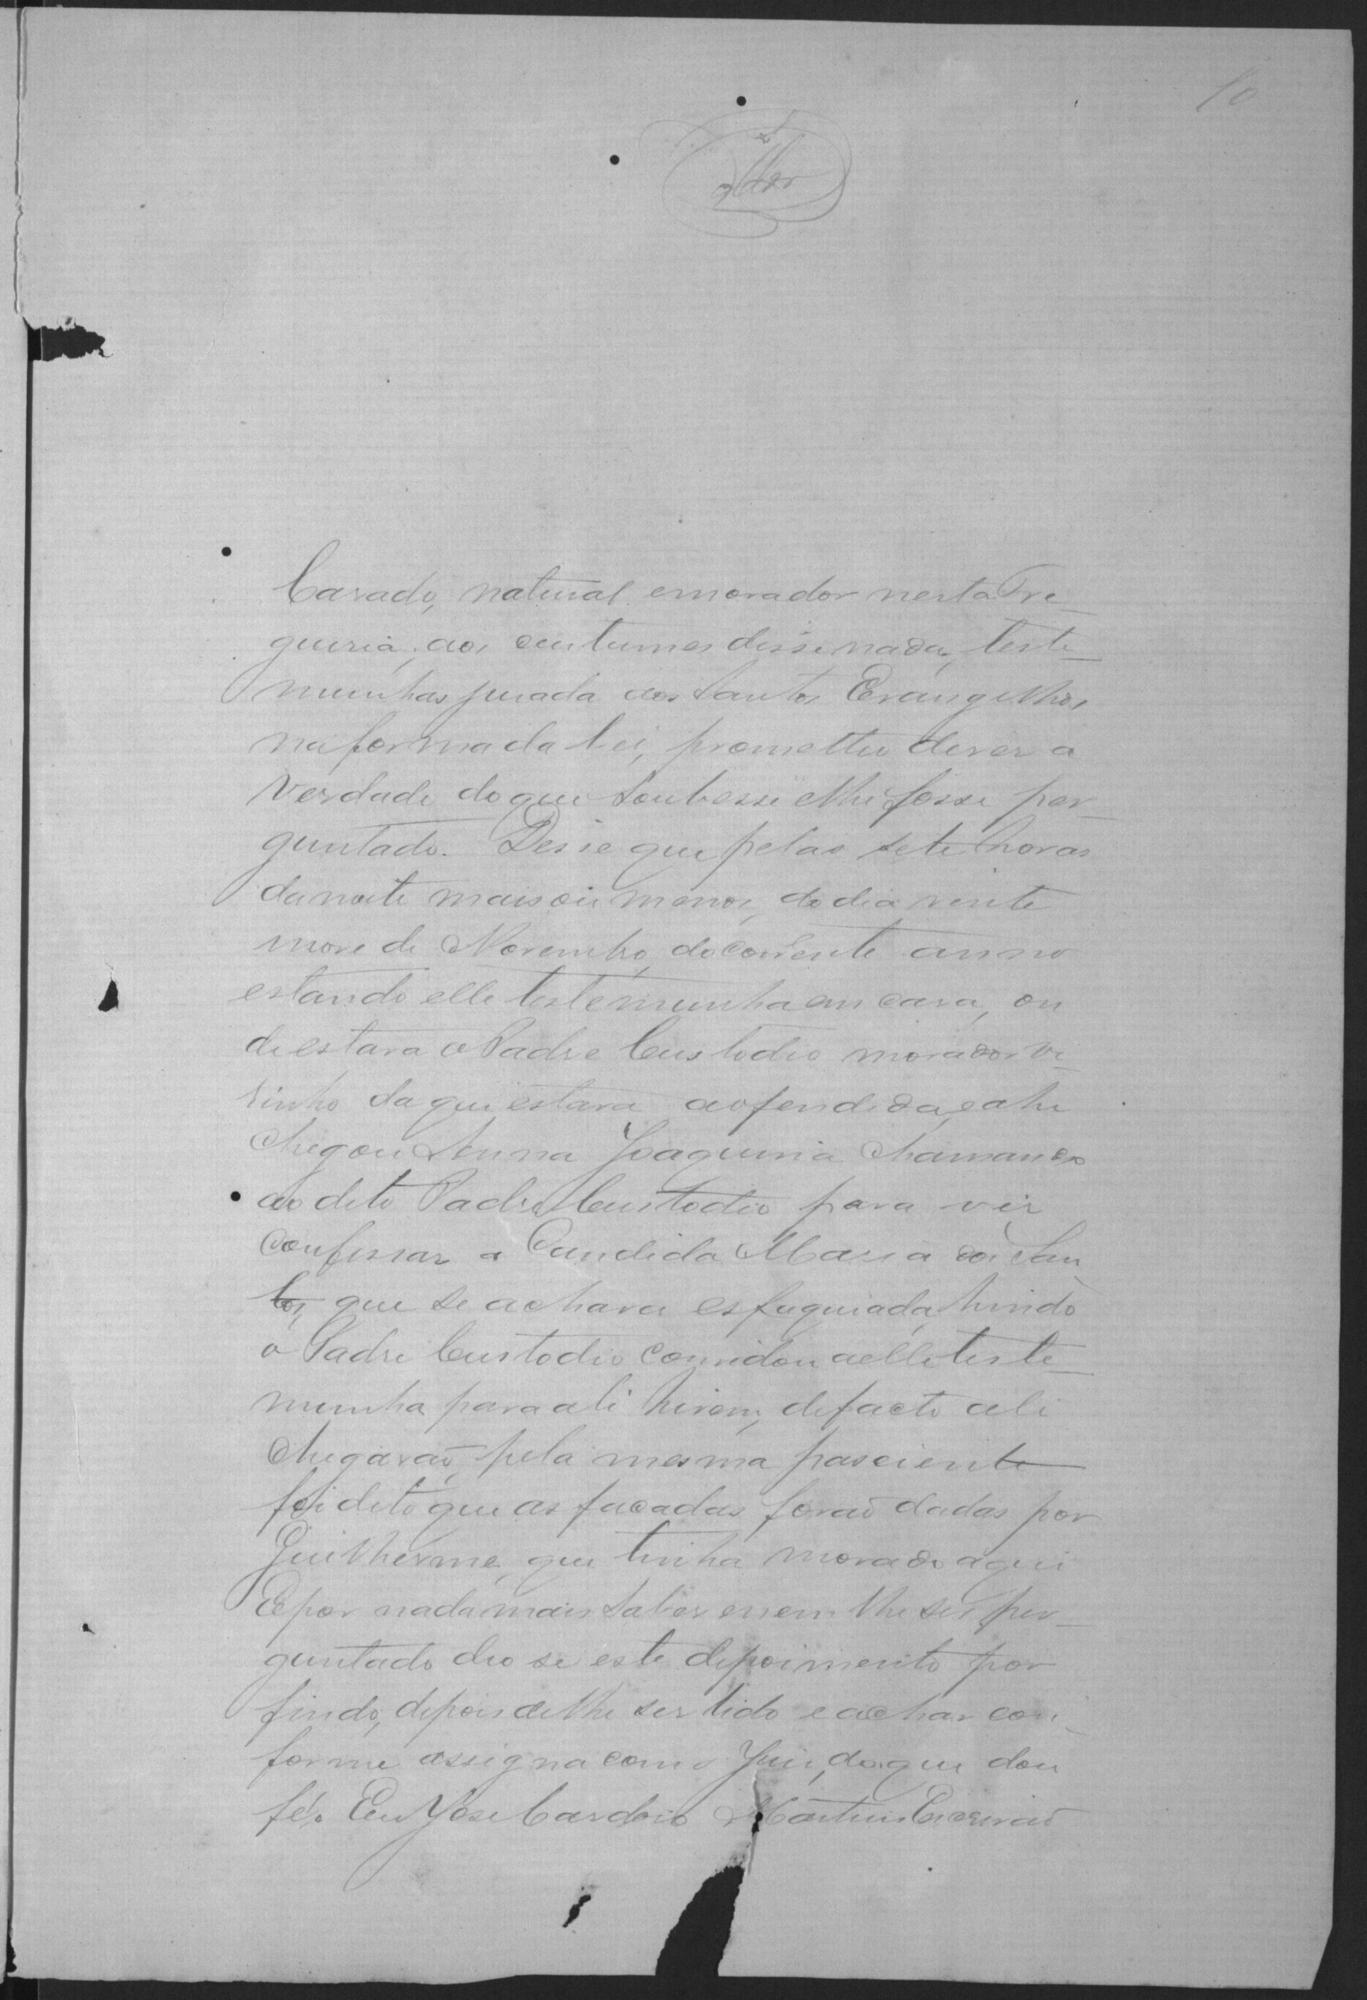 10
Casado, natural e morador nesta Fre-
guesia, aos custumes disse nada, teste-
munhas jurada aos Santos Evangelhos
na forma da lei, prometteu diser a
verdade do que soubesse e lhe fosse per-
guntado. Disse que pelas sete horas
da noite mais ou menos, do dia vinte
nove de Novembro, do corrente anno
estando elle testemunha em casa, on
de estava o Padre Custodio morador vi-
sinho da que estava a ofendida, e ahi
chegou Anna Joaquina chamando
ao dito Padre Custodio para vir
confessar a Candida Maria dos San
tos, que se achava esfaquiada, hindo
o Padre Custodio convidou a elle teste-
munha para ali hirem, de facto ali
chegaraõ, pela mesma pasciente
foi dito que as facadas foraõ dadas por
Guilherme, que tinha morado aqui
E por nada mais saber e nem lhe ser per-
guntado deo se este depoimento por
findo, depois de lhe ser lido e achar con-
forme assigna com o Juis, do que dou
fé. Eu José Cardoso Martins Escrivaõ